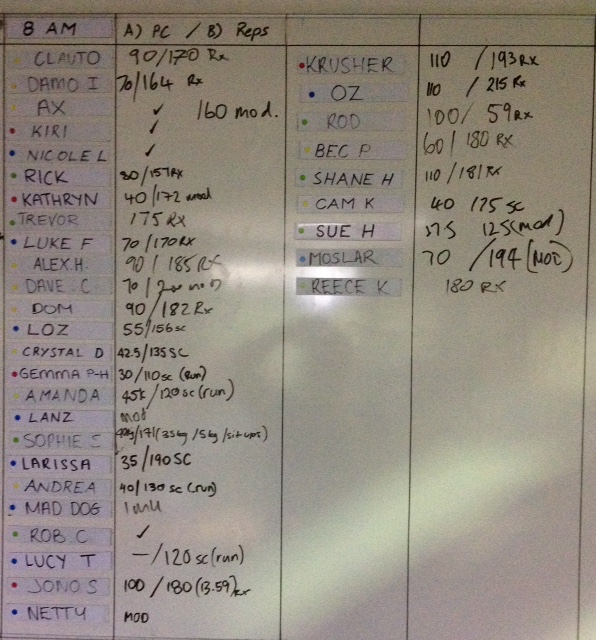 8 AM A) PC / B) Reps
CLAUTO 90/170 Rx
DAMO I 70/164 Rx
AX ✓ 160 mod.
KIRI ✓
NICOLE L ✓
RICK 80/157 Rx
KATHRYN 40/172 mod
TREVOR 175 RX
LUKE F 70/170 RX
ALEX.H. 90/185 RX
DAVE.C 70/ mod
DOM 90/182 Rx
LOZ 55/156 sc
CRYSTAL D 42.5/135 SC
GEMMA P-H 30/110 sc (run)
AMANDA 45k/120 sc (run)
LANZ mod
SOPHIE S /171 (35kg/5kg/situps)
LARISSA 35/190 SC
ANDREA 40/130 sc (run)
MAD DOG
ROB C ✓
LUCY T —/120 sc (run)
JONO S 100/180 (13.59) Rx
NETTY MOD
KRUSHER 110/193 RX
OZ 110/215 Rx
ROD 100/59 Rx
BEC P 60/180 RX
SHANE H 110/181 Rx
CAM K 40 175 sc
SUE H 125 (mod)
MOSLAR 70/194 (MOD)
REECE K 180 RX